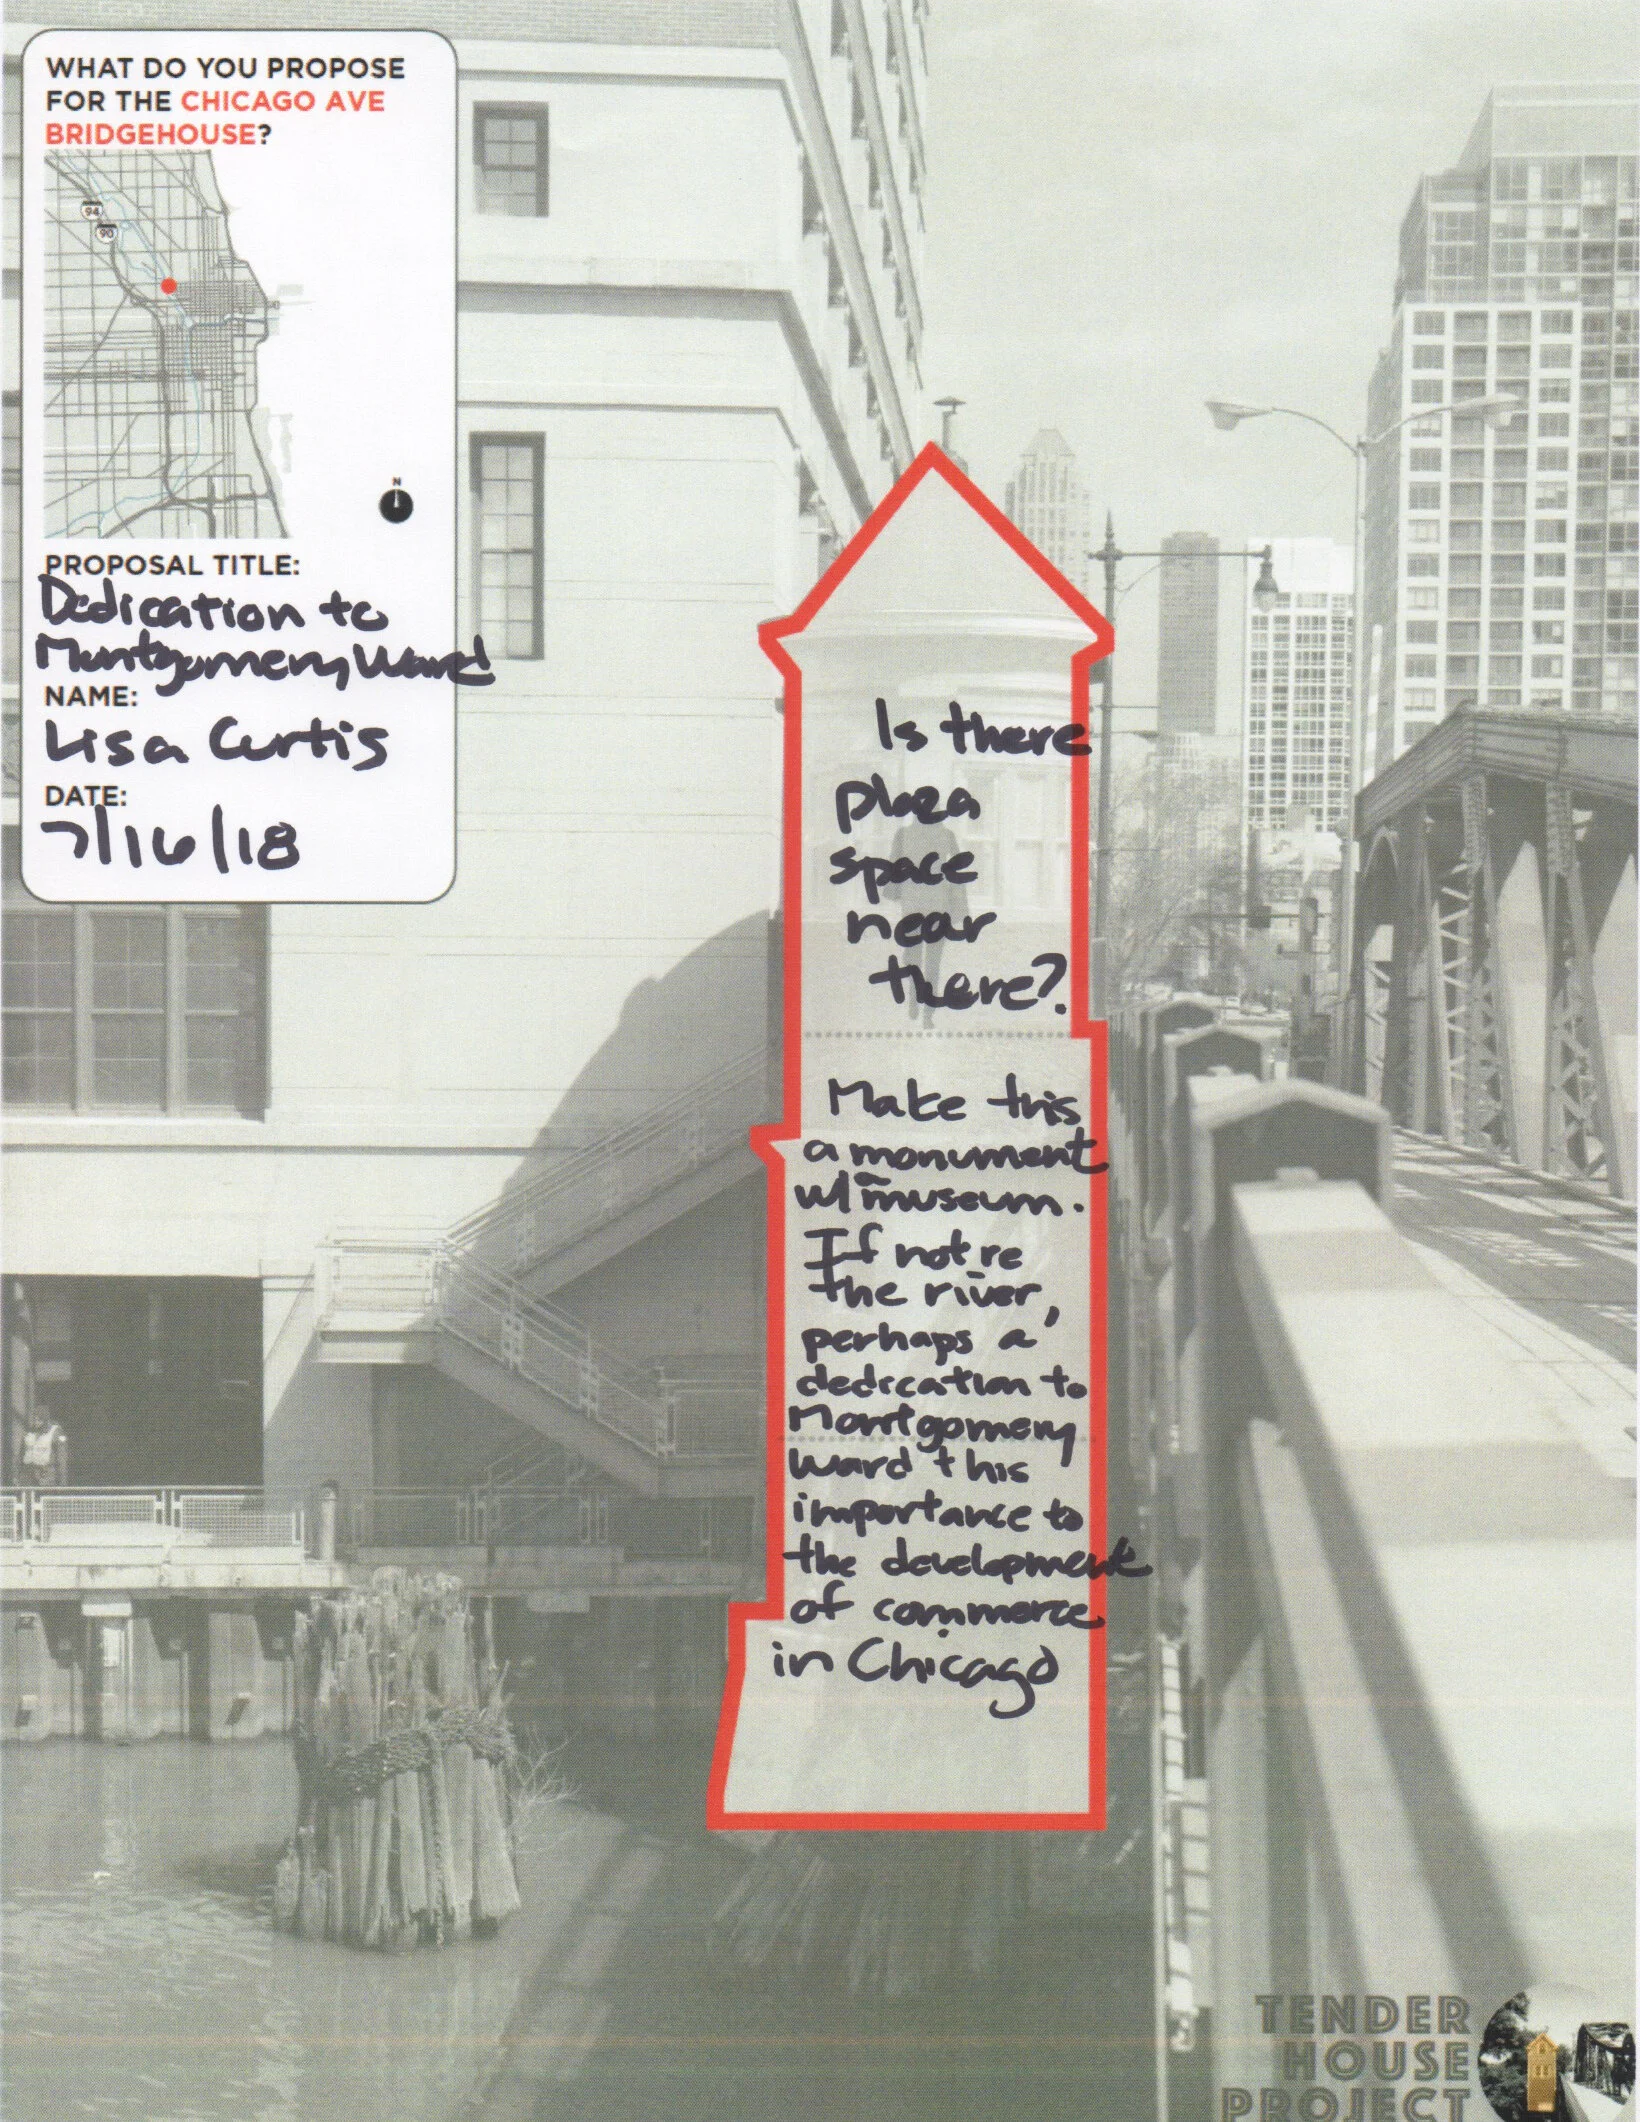 WHAT DO YOU PROPOSE
FOR THE CHICAGO AVE
BRIDGEHOUSE?
94
90
N
PROPOSAL TITLE:
Dedication to
Montgomery Ward
NAME:
Lisa Curtis
DATE:
7/16/18
Is there
plaza
space
near
there?
Make this
a monument
w/ museum.
If not re
the river,
perhaps a
dedication to
Montgomery
Ward this
importance to
the development
of commerce
in Chicago
TENDER
HOUSE
PROJECT